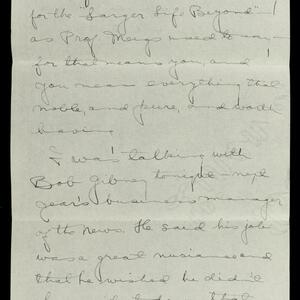 for the "Larger Life Beyond"!
as Prof. Meigs used to say —
for that means you, and
you mean everything that
noble, and pure, and worth
having.
I was talking with
Bob Gibney tonight — next
year's business manager
of the News. He said his job
was a great nuisance and
that he wished he didn't